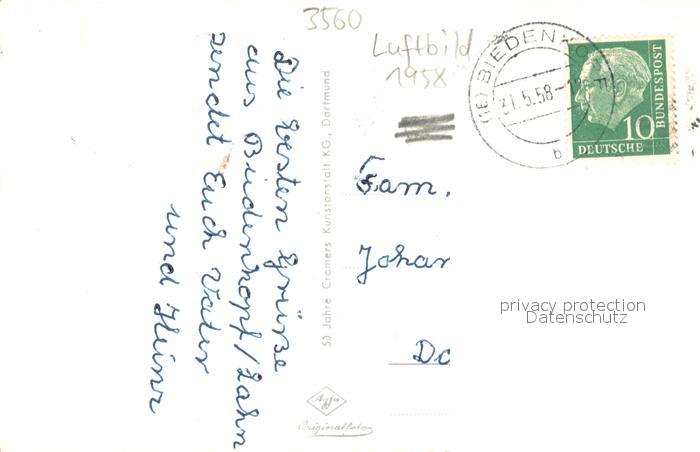 3560
Luftbild
1958
(16) BIEDENKO
31.5.58
b
10
DEUTSCHE
BUNDESPOST
Die besten Grüße
aus Biedenkopf/Lahn
sendet Euch Vater
und Heinz
50 Jahre Cramers Kunstanstalt KG., Dortmund
Fam.
Johan
Do
privacy protection
Datenschutz
Agfa
Originalfoto